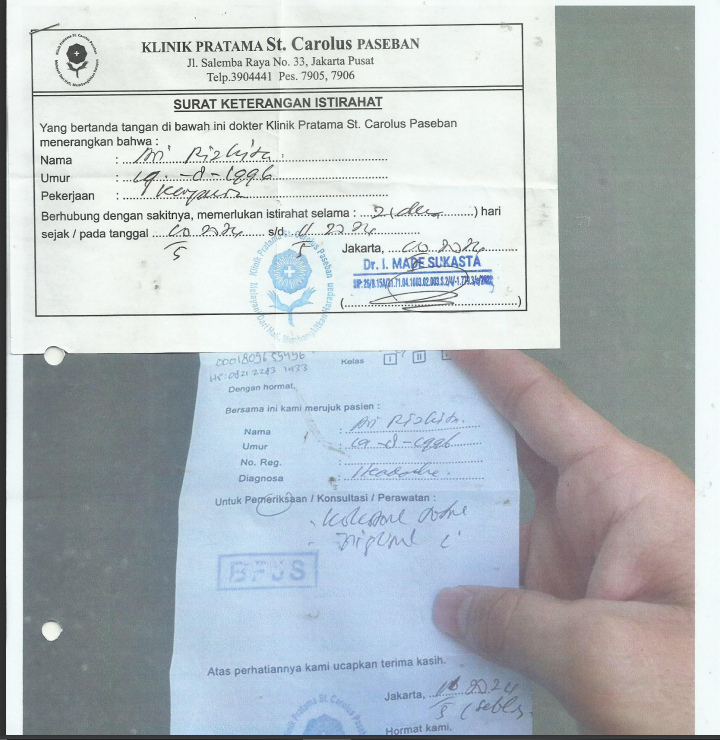 KLINIK PRATAMA St. Carolus PASEBAN
Jl. Salemba Raya No. 33, Jakarta Pusat
Telp.3904441 Pes. 7905, 7906
SURAT KETERANGAN ISTIRAHAT
Yang bertanda tangan di bawah ini dokter Klinik Pratama St. Carolus Paseban
menerangkan bahwa :
Nama : Ari Rizkita
Umur : 19-8-1996
Pekerjaan :
Berhubung dengan sakitnya, memerlukan istirahat selama : 2 ( dua ) hari
sejak / pada tanggal 10/5 2024 s/d 11/5 2024
Jakarta, 10 2024
Dr. I. MADE SUKASTA
Klinik Pratama St. Carolus Paseban
Kelas I II
Dengan hormat,
Bersama ini kami merujuk pasien :
Nama : Ari Rizkita
Umur : 19-8-1996
No. Reg. :
Diagnosa : Headache
Untuk Pemeriksaan / Konsultasi / Perawatan :
BPJS
Atas perhatiannya kami ucapkan terima kasih.
Jakarta, 2024
Pratama St. Carolus
Hormat kami,